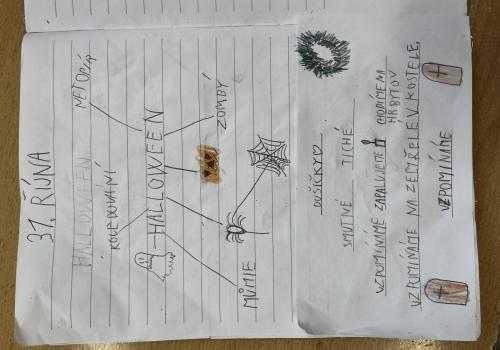 31. ŘÍJNA
HALLOWEEN
KOLEDOVÁNÍ
HALLOWEEN
ZOMBÝ
MŮMIE
DUŠIČKY
SMUTNÉ TICHÉ
VZPOMÍNÁME ZAPALUJEME CHODÍME NA HŘBITOV
VZPOMÍNÁME NA ZEMŘELÉ V KOSTELE.
VZPOMÍNÁME